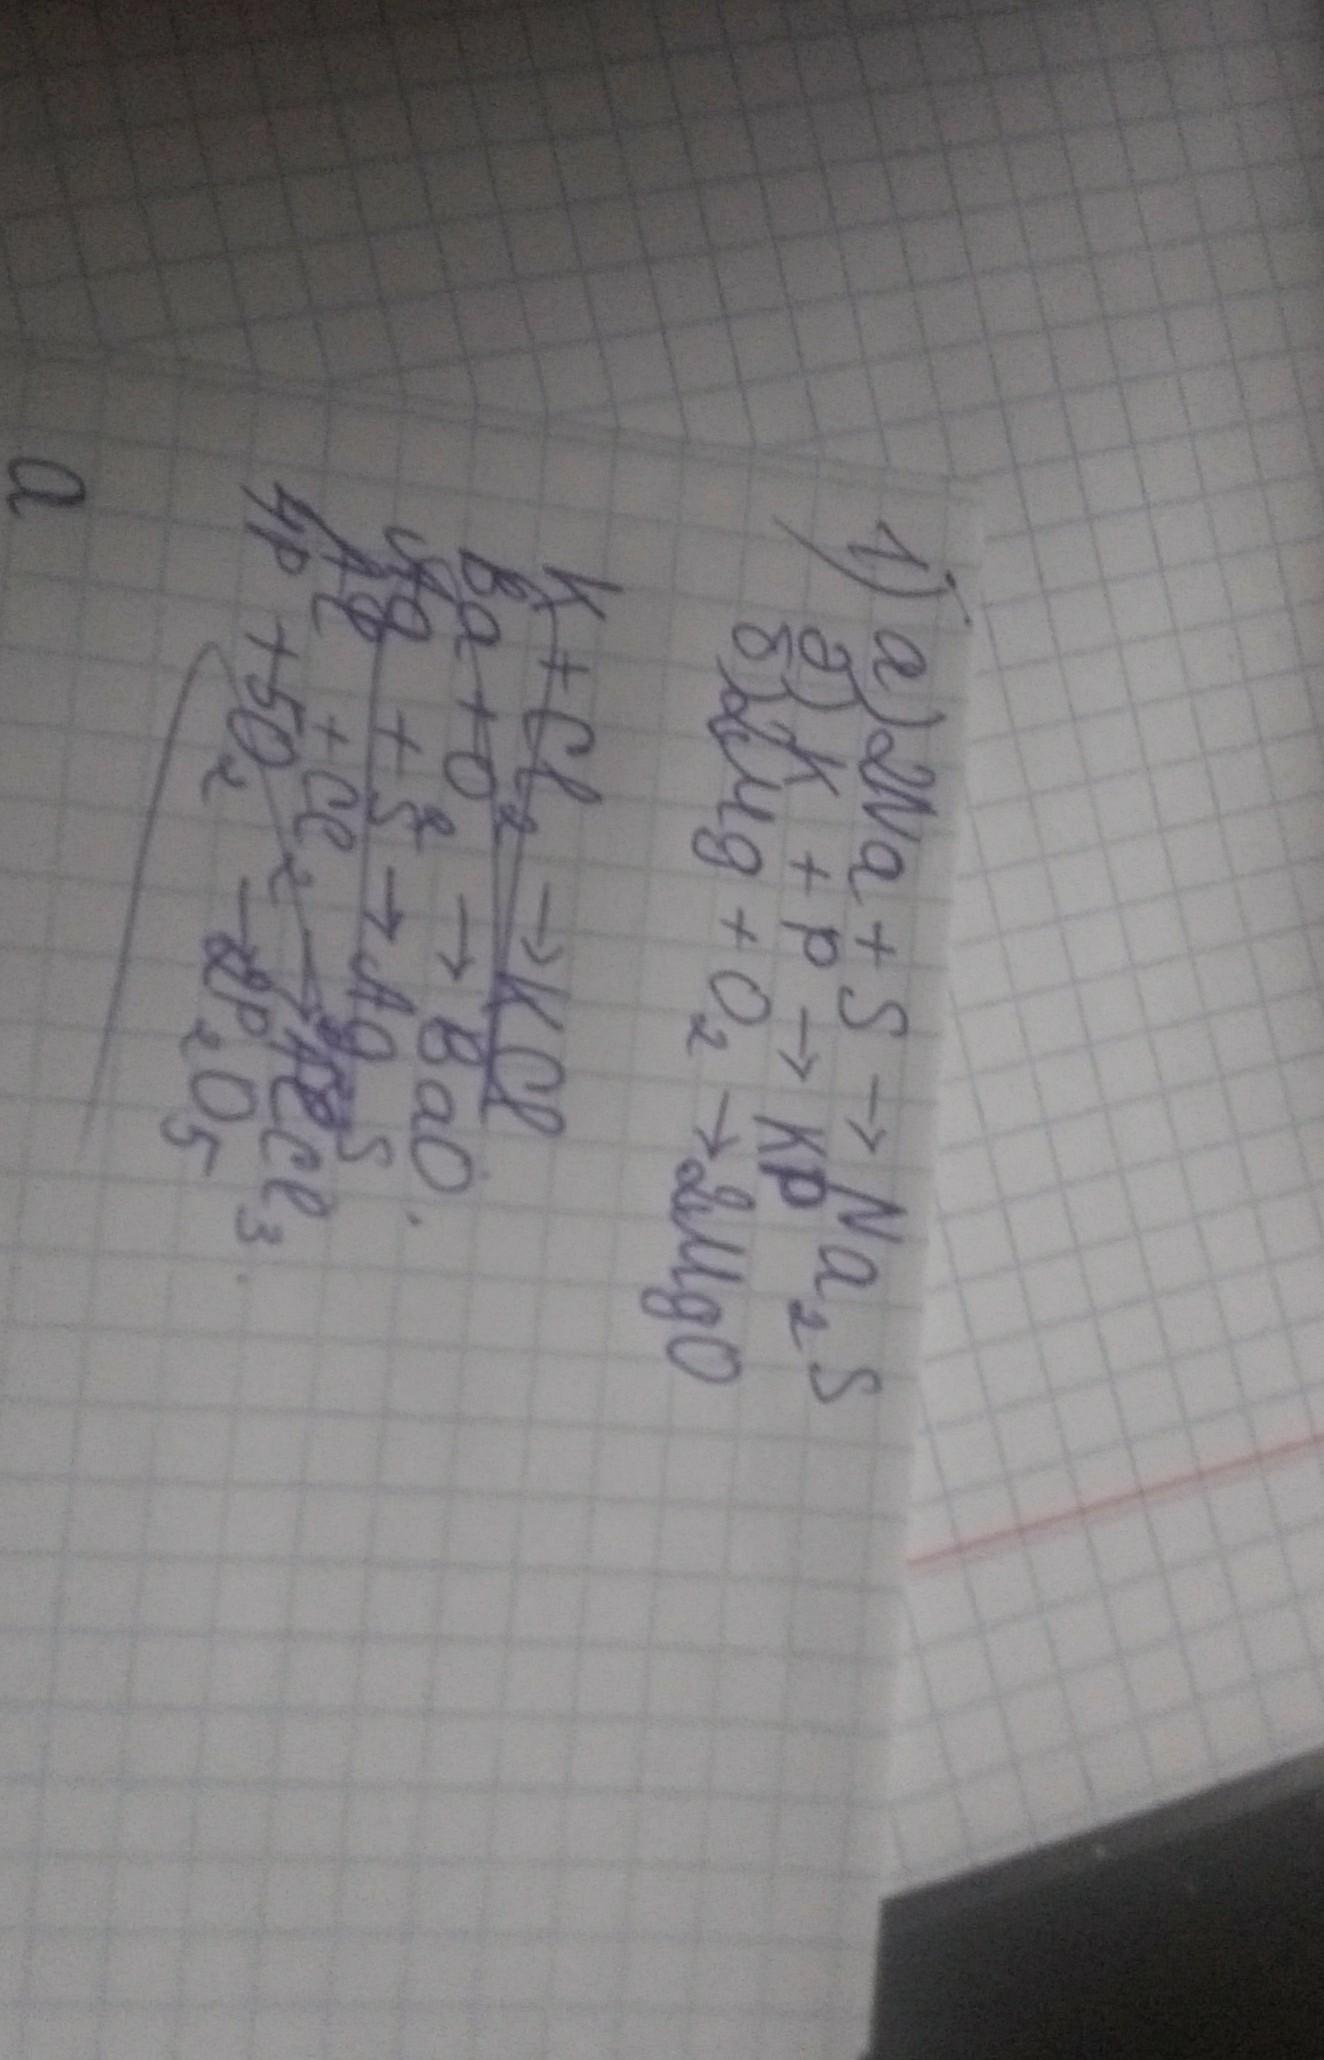 1) а) 2Na + S → Na₂S
д) K + P → KP
б) 2Mg + O₂ → 2MgO
K + Cl₂ → KCl
Ba + O₂ → BaO
Ag + S → AgS
Al + Cl₂ → AlCl₃
4P + 5O₂ → 2P₂O₅
a